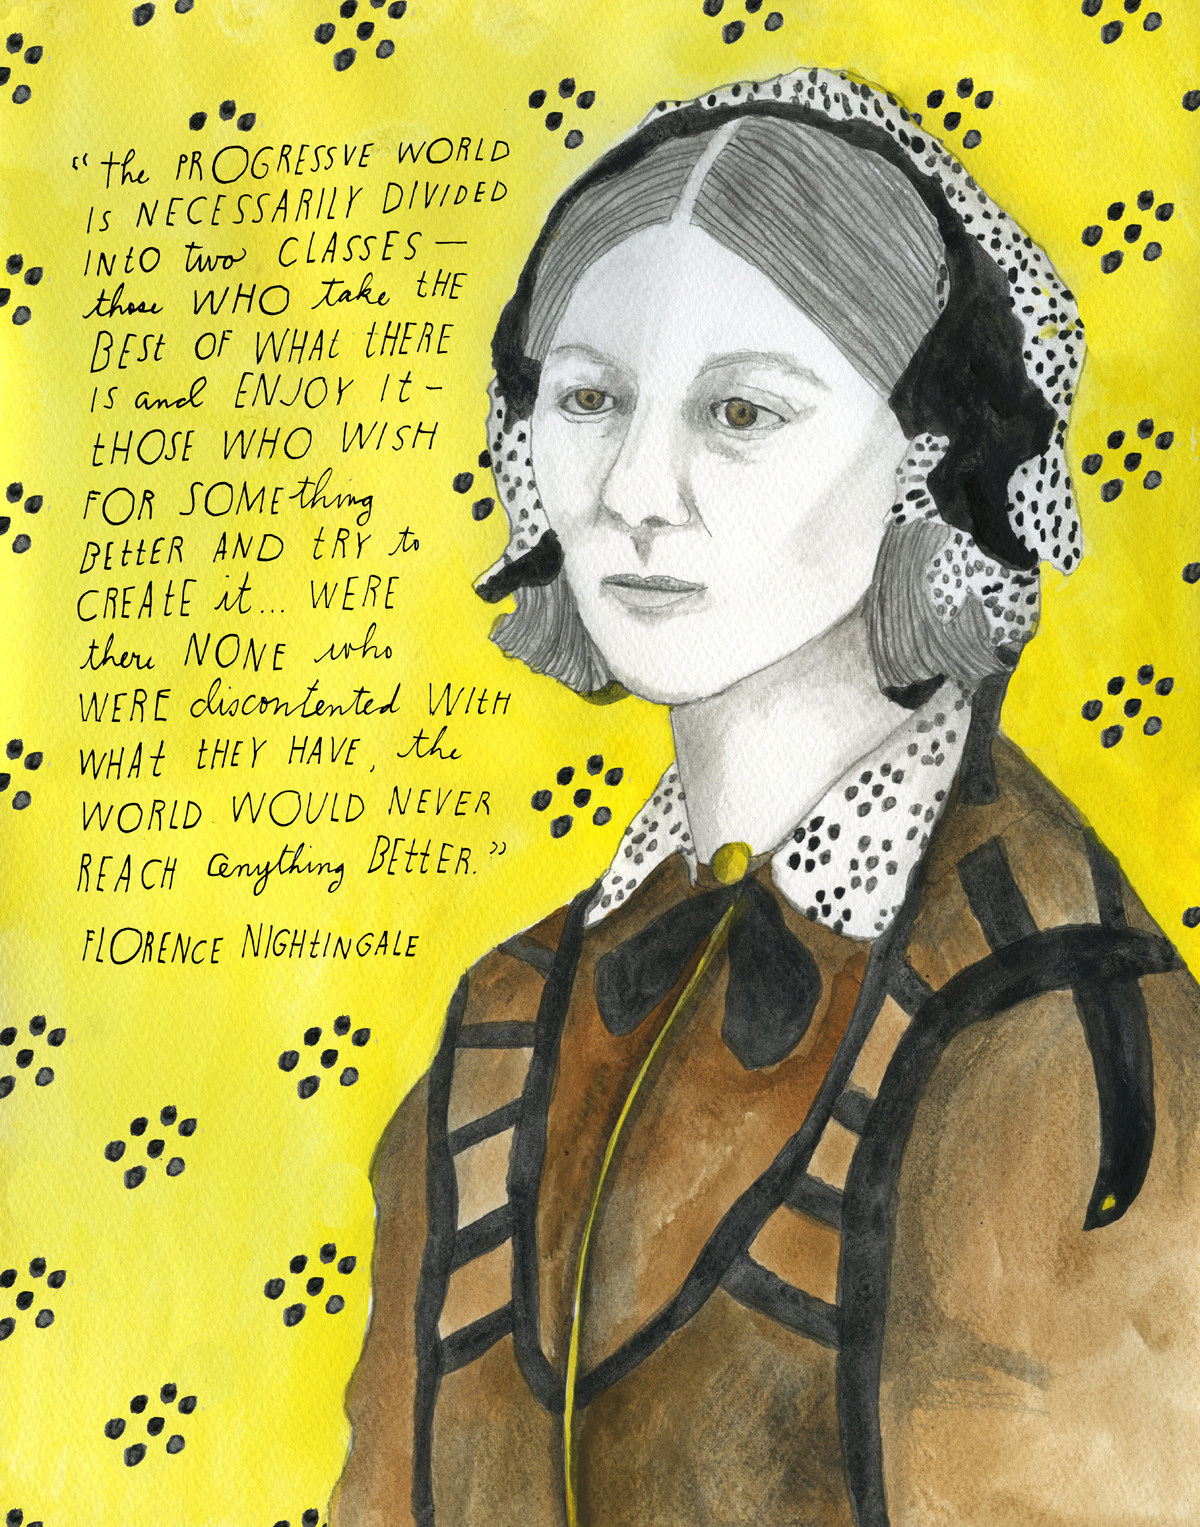 “the PROGRESSVE WORLD
IS NECESSARILY DIVIDED
INTO two CLASSES —
those WHO take tHE
BESt OF WHAt tHERE
IS and ENJOY It —
tHOSE WHO WISH
FOR SOMEthing
BEttER AND tRY to
CREAtE it... WERE
there NONE who
WERE discontented WItH
WHAt tHEY HAVE, the
WORLD WOULD NEVER
REACH anything BEttER.”
FLORENCE NIGHtINGALE